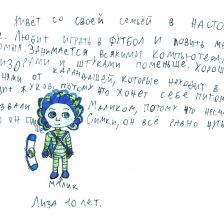 живёт со своей семьёй в насто
е. Любит играть в футбол и ловить ме
Занимается всякими компьютера
зорами и штуками поменьше. Хорош
нями от карандашей, которые находит в
дит жуков, потому что хочет себе питом
звали Маликом, потому что несмо
о он си Симки, он всё равно
Малик
Лиза 10 лет.